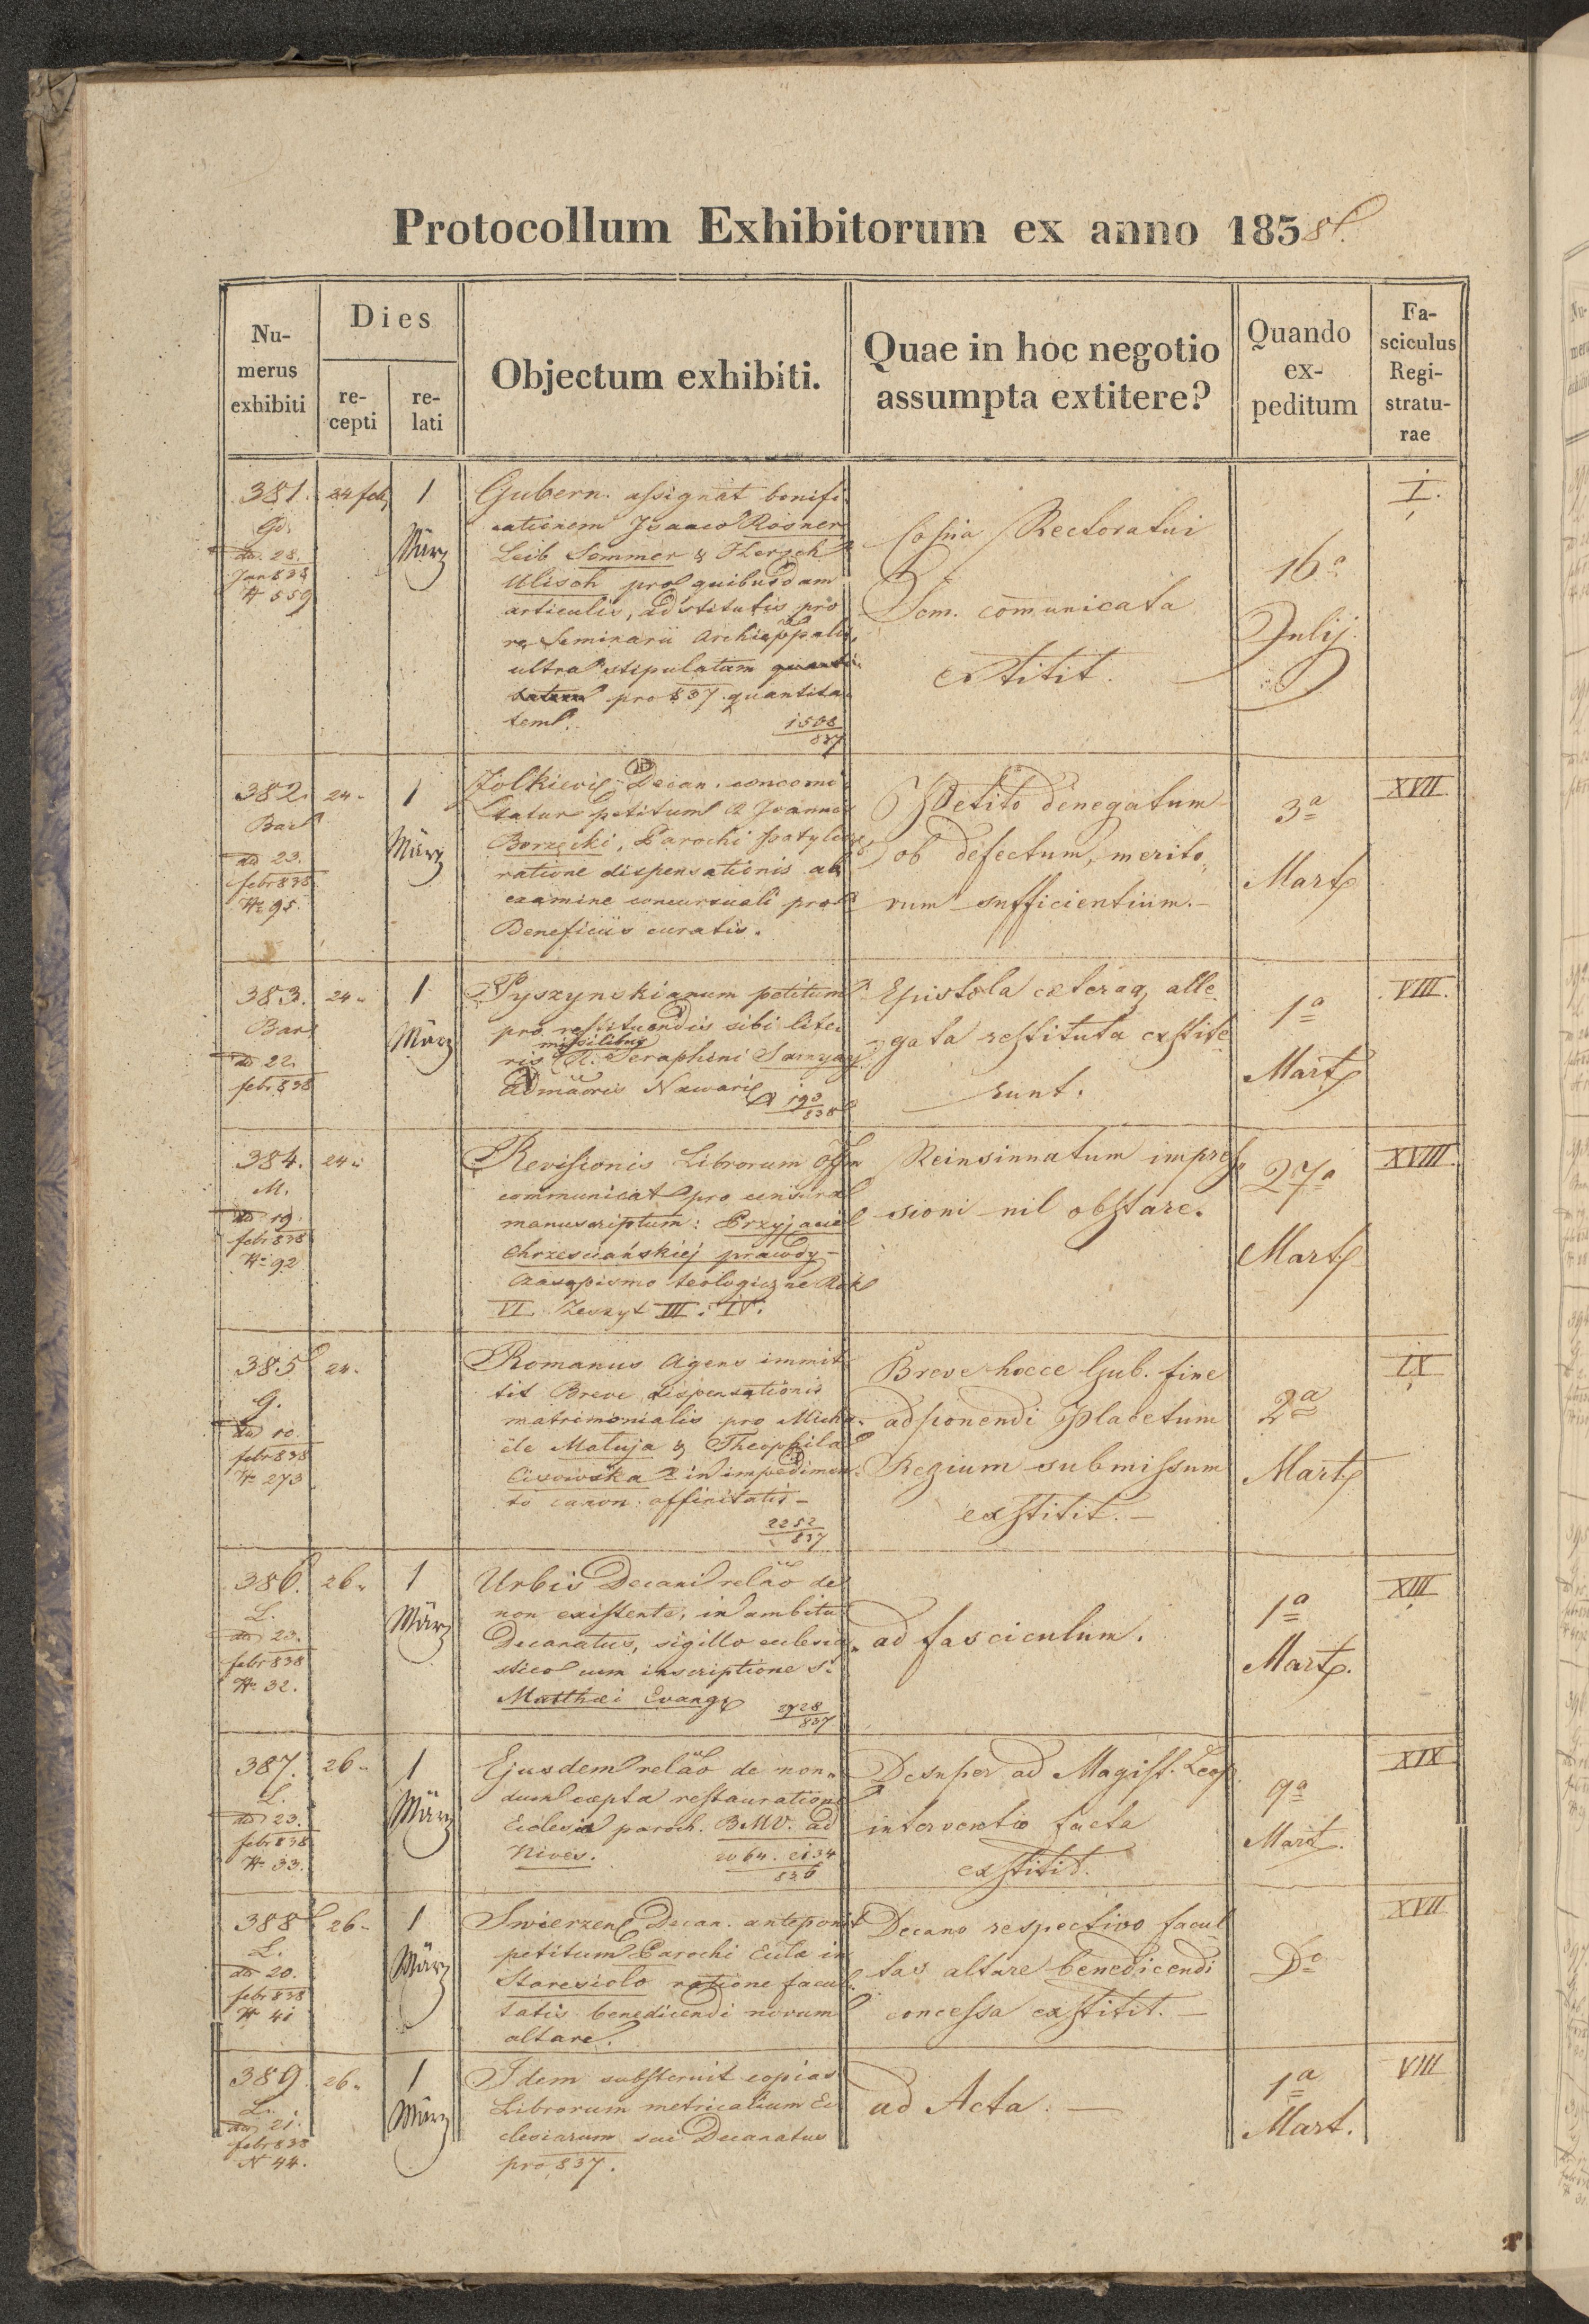 Protocollum Exhibitorum ex anno 1858.
Nu-
merus
exhibiti
Dies
re-
cepti
re-
lati
Objectum exhibiti.
Quae in hoc negotio
assumpta extitere?
Quando
ex-
peditum
Fa-
sciculus
Regi-
stratu-
rae
381.
Go.
dd. 28.
Jan 838
N 559
24 feb
1
März
Gubern. assignat bonifi-
cationem Isaaco Rosner
Leib Sommer & Hersch
Ulisch pro quibusdam
articulis, adstitutis pro
re Seminarii Archieppalis,
ultra stipulatam quanti-
tatem pro 837. quantita-
tem.
1508
837
Rectoratui
Sem. comunicata
extitit.
16a
Julij
I.
382.
Bar
dd 23.
febr 838
N 95.
24.
1
März
Zolkievi. Decan. concomi-
tatur petitum Joannis
Borzęcki, Parochi Potylicze,
ratione dispensationis ab
examine concursuali pro
Beneficiis curatis.
Petito denegatum
ob defectum, merito-
rum sufficientium.-
3a
Mart
XVII
383.
Bar
dd 22.
febr 838
24.
1
März
Pyszynskianum petitum
pro restituendis sibi lite-
missilibus
ris R. Seraphini
Admaoris Nawari
193
838
Epistola caeteraq alle-
gata restituta exstite-
runt.
1a
Mart
VIII.
384.
M.
dd 19.
febr 838
N 92
24.
Revisionis Librorum Offm
communicat pro censura
manuscriptum: Przyjaciel
chrzesciańskiej prawdy-
Czasopismo teologiczne Rok
VI. Zeszyt III. IV.
Reinsinuatum impres-
sioni nil obstare.
27a
Mart
XVIII.
385
G.
dd 10.
febr 838
N 273
24.
Romanus Agens immit-
tit Breve dispensationis
matrimonialis pro Micha-
ele Matuja & Theophila
Cisowska in impedimen-
to canon: affinitatis-
2252
837
Breve hocce Gub. fine
adponendi Placetum
Regium submissum
exstitit.-
2a
Mart
IX
386.
L.
dd 23.
febr 838
N 32.
26.
1
März
Urbis Decani relao de
non existente, in ambitu
Decanatus, sigillo ecclesia-
stico cum inscriptione S.
Matthaei Evang.
2728
837
ad fasciculum.
1a
Mart.
XIII
387.
L.
dd 23.
febr 838
N 33.
26.
1
März
Ejusdem relao de non-
dum coepta restauratione
Ecclesia paroch. BMV. ad
Nives.
2064. 2134
836
Desuper ad Magist. Leop.
interventio facta
exstitit.
9a
Mart.
XIX
388
L.
dd 20.
febr 838
N 41
26.
1
März
Swierzen Decan. anteponit
petitum Parochi Eclae in
Staresiolo ratione facul-
tatis benedicendi novum
altare.
Decano respectivo facul-
tas altare benedicendi
concessa exstitit.-
Do
XVII
389.
L.
dd 21.
febr 838
N 44.
26.
1
März
Idem substernit copias
Librorum metricalium Ec-
clesiarum sui Decanatus
pro 837.
ad Acta.-
1a
Mart.
VIII